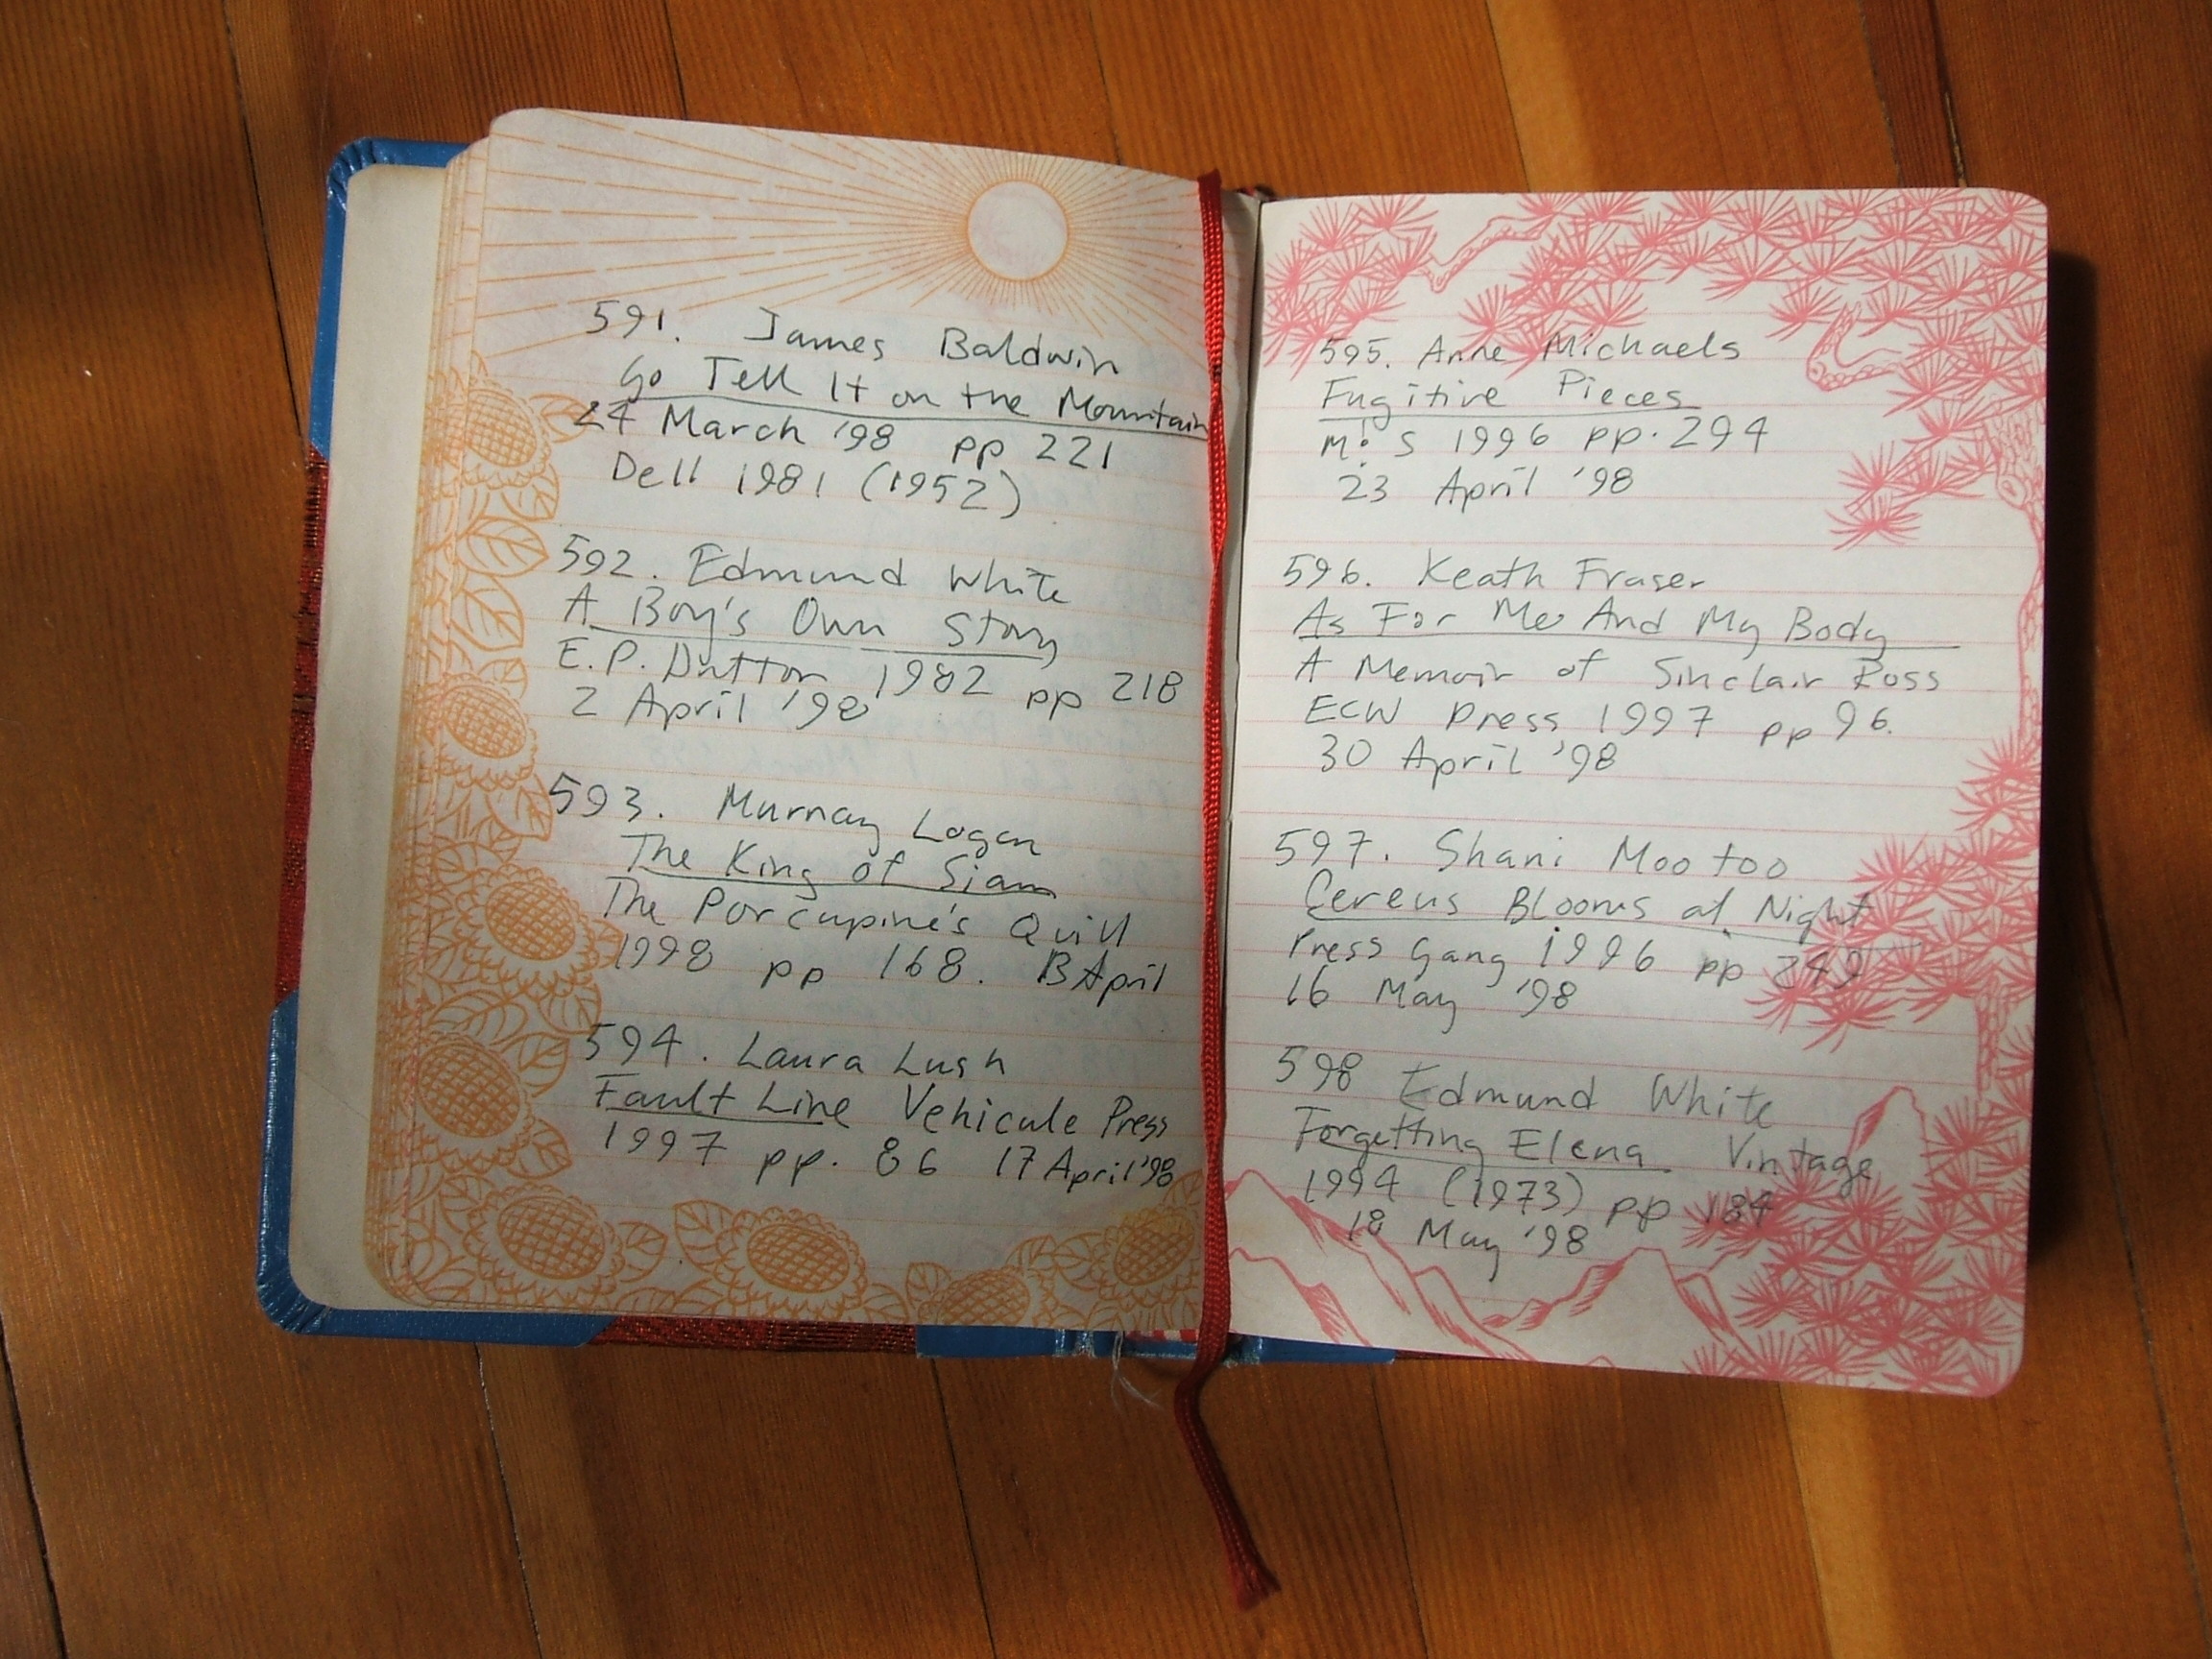 591. James Baldwin
Go Tell It on the Mountain
24 March '98 pp 221
Dell 1981 (1952)
592. Edmund White
A Boy's Own Story
E.P. Dutton 1982 pp 218
2 April '98
593. Murray Logan
The King of Siam
The Porcupine's Quill
1998 pp 168. 13 April
594. Laura Lush
Fault Line Vehicule Press
1997 pp. 86 17 April '98
595. Anne Michaels
Fugitive Pieces
M&S 1996 pp. 294
23 April '98
596. Keath Fraser
As For Me And My Body
A Memoir of Sinclair Ross
ECW Press 1997 pp 96.
30 April '98
597. Shani Mootoo
Cereus Blooms at Night
Press Gang 1996 pp 249
16 May '98
598 Edmund White
Forgetting Elena Vintage
1994 (1973) pp 184
18 May '98